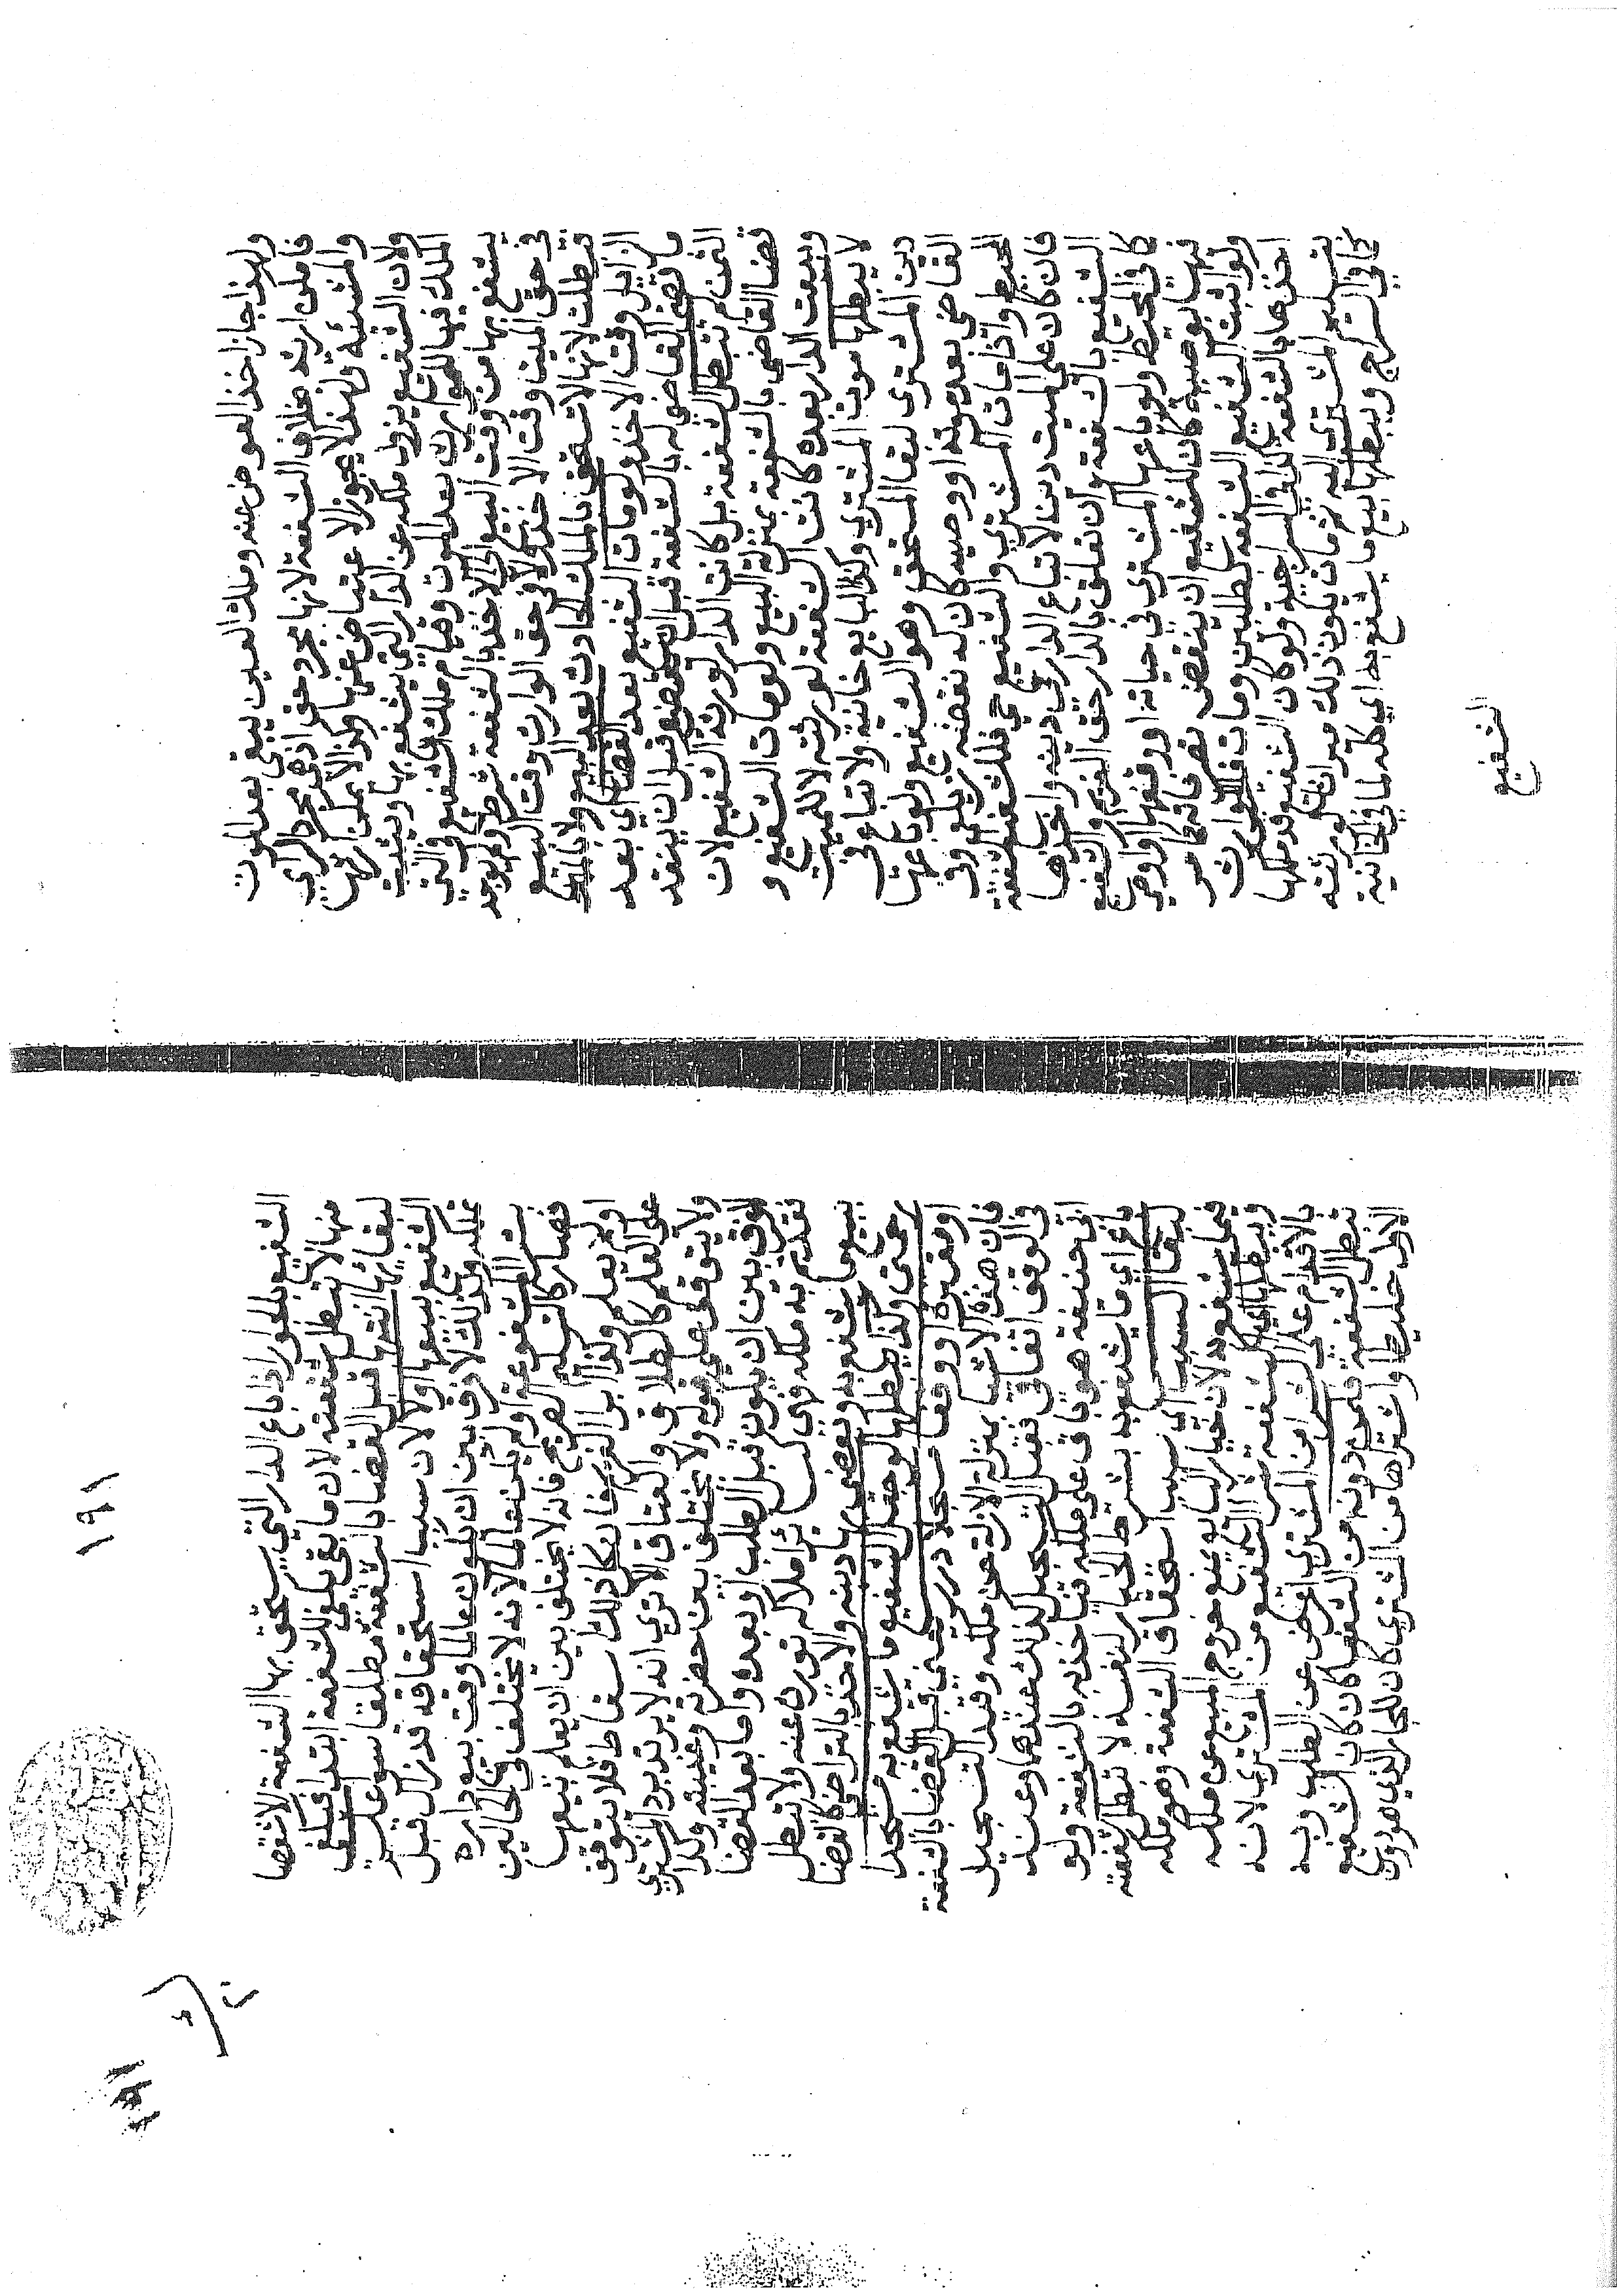 ولهذا جاز اخذ العوض عنه وملك العين يبقى بعد الموت
فامكن ارثه بخلاف الشفعة لانها مجرد حق اذ هو مجرد الراي
والمشيئة ولهذا لا يجوز الاعتياض عنها وكذا لا يمكن ارثها
ولان الشفيع يزول ملكه عن الدار التي يشفع بها ويثبت
الملك فيها للوارث بعد الموت وقيام ملك الشفيع في التي
يشفع بها من وقت البيع الى الاخذ بالشفعة شرط ولم يوجد
في حق الميت وقت الاخذ ولا في حق الوارث وقت البيع
فبطلت لانها لا تستحق بالملك الحادث بعد البيع ولا بالملك
الزايل وقت الاخذ ولو مات الشفيع بعد القضا اي بعد
ما قضى القاضي له بالشفعة قبل ان ينقد
الثمن لم تبطل الشفعة بل كانت الدار لورثة الشفيع لان
قضا القاضي بالشفعة بمنزلة البيع ولو مات الشفيع و
وبيعت الدار بعده كانت الشفعة لورثته لا للميت
لا يبطلها موت المشتري وكذا البايع خانية ولا تباع في
دين المشتري لبقا المستحق وهو الشفيع ولو باعها
القاضي بعد موته او وصيه كان له نقضه زيلعي وفي
المحيط واذا مات المشتري والشفيع حي فللشفيع الشفعة
فان كان على الميت دين لا تباع الدار في دينه واخذها
الشفيع بالشفعة وان تعلق بالدار حق الغريم والشفيع
كما في المحيط ولو باعها المشتري في حياته او وقفها او اوصى
فيها بوصية كان للشفيع ان ينقض تصرفاته كما مر
ولو اثبت الشفيع الشفعة بطلبين ومات فللوارث
اخذها بالشفعة كذا في السراجية ولو كان الشفيع قد ملكها
بتسليم المشتري اليه ثم مات يكون ذلك ميراثا لورثته
كما في السراج ويبطلها بيع ما يشفع به اي كله لما في الخانية
الشفيع
١٩١
الشفيع بالجوار اذا باع الدار التي يستحق بها الشفعة الا شقصا
منها لا تبطل شفعته لان ما بقي يكفي للشفعة ابتدا فيكفي
لبقائها انتهى قبل القضا بالشفعة مطلقا سوا علم
الشفيع ببيعها او لا لان سبب استحقاقه قد زال قبل
تملكه وكذلك لا فرق بين ان يكون عالما وقت بيع داره
بشرا المشفوعة او لم يكن عالما لانه لا يختلف في الحالين
فصار كالتسليم الصريح فانه لا يختلف بين ان يعلم ببيعها
او لم يعلم وكذا ابرا الغريم لان كل ذلك اسقاط فلا يتوقف
على العلم كالطلاق والعتاق الا ترى انه لا يرتد برد المشتري
ولا يتوقف على قبوله ولا يختلف بين حضرته وغيبته وكذا
لا فرق بين ان يكون قبل الطلب او بعده واما بعد القضا
تقدم به ملكه فهي كسائر املاكه تورث عنه ولا تبطل
ببيع ما يشفع به وبعضهم يا دينه والاخذ بالتراضي كالقضا
معنى وكذا يبطلها لو جعل الشفيع ما يشفع به مسجدا
او مقبرة او وقفا مسجلا درر يعني قبل القضا بالشفعة
فان هذه الاشيا بمنزلة الازالة عن ملكه وقيد التسجيل
في الوقف اتفاقي فقبل التسجيل كذلك عندهما وعند
ابي حنيفة هو باق على ملكه فياخذ به بالشفعة ولو
باع اي ما يشفع به بشرط الخيار لنفسه لا تبطل شفعته
لبقا السبب اي سبب استحقاق الشفعة وهو ملكه
فيما يشفع به لان خيار البايع يمنع خروج المبيع عن ملكه
ويبطلها اي الشفعة شرا الشفيع من المشتري لانه
بالاقدام على الشرا من المشتري اعرض عن الطلب وبه
تبطل الشفعة فلمن دونه من الشفعا كان كان الشفيع
الاول خليطا واشتراها من المشتري كان للجار الذي هو دون